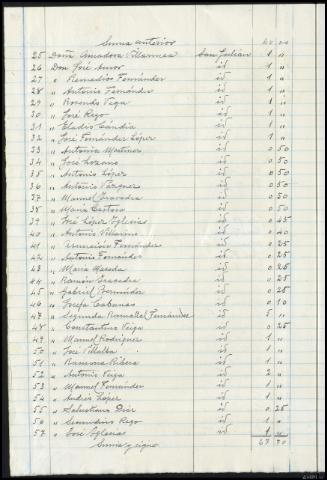 Suma anterior
25 Doña Amadora Villarmea San Julián 1 "
26 Don José Amor id 1 "
27 " Remedios Fernández id 1 "
28 " Antonio Fernández id 1 "
29 " Rosendo Vega id 1 "
30 " José Rego id 1 "
31 " Eladio Candia id 1 "
32 " José Fernández López id 1 "
33 " Antonia Martínez id 0 50
34 " José Lozano id 0 50
35 " Antonio López id 0 50
36 " Antonio Vázquez id 0 50
37 " Manuel id 0 50
38 " María id 0 50
39 " José López Iglesias id 0 45
40 " Antonio Villarino id 0 40
41 " Asunción Fernández id 0 25
42 " Antonio Fernández id 0 25
43 " María id 0 25
44 " Ramón id 0 25
45 " Gabriel Bermúdez id 0 25
46 " Josefa Cabanas id 0 10
47 " Segunda Fernández id 5 "
48 " Constantina Veiga id 0 25
49 " Manuel Rodríguez id 1 "
50 " José Villalba id 1 "
51 " Ramona Ribera id 1 "
52 " Antonio Veiga id 2 "
53 " Manuel Fernández id 1 "
54 " Andrés López id 1 "
55 " Salustiano Díaz id 0 25
56 " Secundino Rego id 1 "
57 " José Iglesias id 1
Suma y sigue 67 70